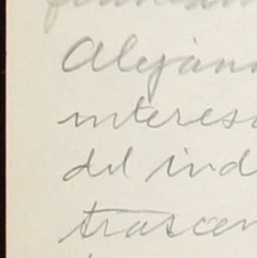 Aleján
interes
del ind
trascen